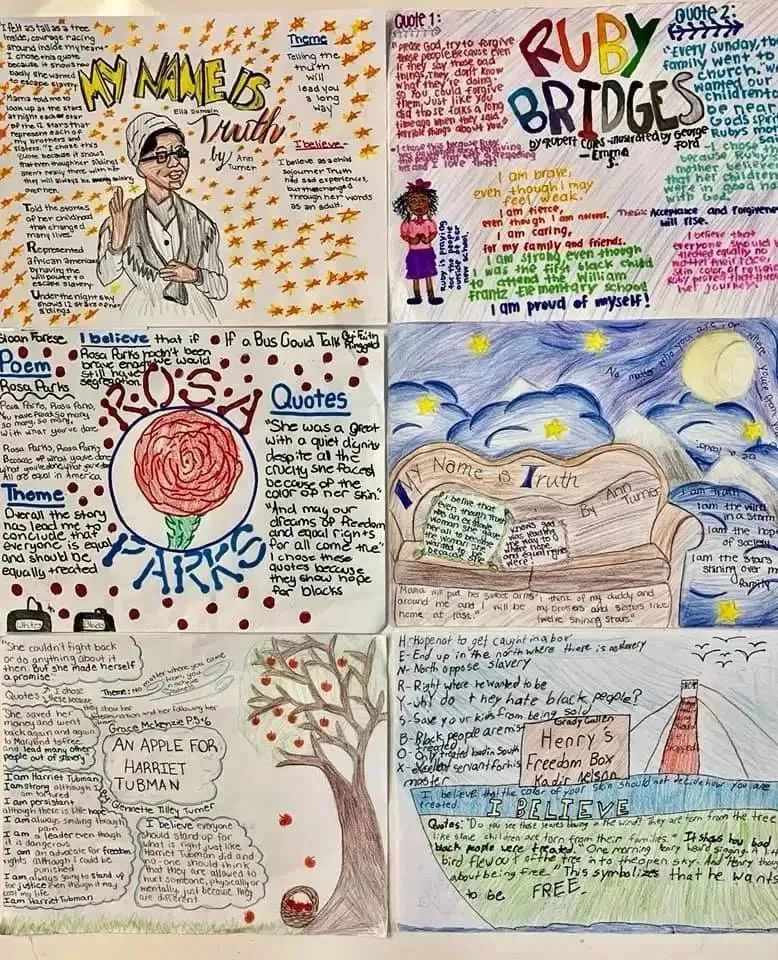 I felt as tall as a tree
inside, courage racing
around inside my heart
I chose this quote
because it shows how
badly she wanted
to escape slavery.
Mama told me to
look up at the stars
at night each star
of the 12 stars that
represent each of
my brothers and
sisters. I chose this
quote because it shows
that even though her siblings
aren't really there with her
they will always be
over her.
Told the stories
of her childhood
that changed
many lives.
Represented
african americans
by having the
will power to
escape slavery.
Under the night sky
shows 12 stars of her
siblings
MY NAME IS
Truth
by Ann
Turner
Theme
Telling the
truth
will
lead you
a long
way
I believe-
I believe as a child
Sojourner Truth
had sad experiences,
but that changed
through her words
as an adult.
Quote 1:
"Please God, try to forgive
those people. Because even
if they say those bad
things, They don't know
what they're doing.
So You could forgive
them, Just like you
did those folks a long
time ago when they said
terrible things about You."
I chose this because Ruby
and I love that!
RUBY
BRIDGES
by Robert Coles - illustrated by George
Ford
Quote 2:
"Every Sunday, the
family went to
church. we
wanted our
children to
be near
God's spirit
Ruby's mom
I chose
because Ruby's
mother believed
that her children
were in good
with God.
I am brave,
even though I may
feel weak.
I am fierce,
even though I am nervous.
I am caring,
for my family and friends.
I am strong even though
I was the first black child
to attend the William
Frantz Elementary School
I am proud of myself!
Ruby is praying
for the people
outside of her
new school.
Thesis: Acceptance and Forgiveness
will rise.
I believe that
everyone should be
treated equally no
matter their race,
skin color, or religion
her journey!
Sloan Farese
I believe that if
Rosa Parks hadn't been
brave enough we would
still have
segregation.
If a Bus Could Talk By: Faith
Ringgold
Poem
Rosa Parks
Rosa Parks, Rosa Parks,
so many, so many,
with what you've done.
Rosa Parks, Rosa Parks,
Because of what you've done
what you've done, what you've done
All are equal in America
Theme
Overall the story
has lead me to
conclude that
everyone is equal
and should be
equally treated
ROSA
PARKS
Quotes
"She was a great
with a quiet dignity
despite all the
cruelty she faced
because of the
color of her skin."
"And may our
dreams of freedom
and equal rights
for all come true"
I chose these
quotes because
they show hope
for blacks
Whites
Blacks
No matter who you are, or where you're from you
be a leader
My Name is Truth
By Ann
Turner
I belive that
even though Truth
was an ex slave
woman she gave
her all to become
the woman she
wanted to be
because she
knows god
was lead her
the way to
where hope
and equal rights
were!
I am Truth
I am the wind
in a storm
I am the hope
of society
I am the stars
shining over my
family
Mama will put her sweet arms
around me and I will be
home at last."
"I think of my daddy and
my brothers and sisters like
twelve shining stars."
"She couldn't fight back
or do anything about it
then. But she made herself
a promise."
Quotes
I chose
these because
they show her
determination and her following her
Theme: No matter where you come
from, you
can achieve
greatness
She saved her
money and went
back again and again
to Maryland to free
and lead many other
people out of slavery
Grace McKenzie P.5+6
AN APPLE FOR
HARRIET
TUBMAN
By Glennette Tilley Turner
I am Harriet Tubman
I am strong although I
am tortured
I am persistant
although there is little hope
I am always smiling through
pain
I am a leader even though
it is dangerous
I am an advocate for freedom
rights although I could be
punished
I am always going to stand up
for justice even though it may
cost my life
I am Harriet Tubman
I believe everyone
should stand up for
what is right just like
Harriet Tubman did and
no-one should think
that they are allowed to
hurt someone, physically or
mentally, just because they
are different.
H-Hope not to get caught in a box
E-End up in the north where there is no slavery
N-North oppose slavery
R-Right where he wanted to be
Y-Why do they hate black people?
S-Save your kids from being sold
B-Black people are mistreated
O-Only treated bad in South
X-Excellent servant for his
master
Grady Cullen
Henry's
Freedom Box
Kadir Nelson
I believe that the color of your skin should not decide how you are
treated.
I BELIEVE
Quotes: "Do you see those leaves blowing in the wind? They are torn from the tree
like slave children are torn from their families." It shows how bad
black people were treated. "One morning Henry heard singing. A little
bird flew out of the tree into the open sky. And Henry thought
about being free." This symbolizes that he wants
to be FREE.